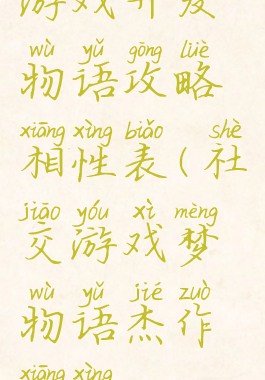 游戏开发
wù yǔ gōng lüè
物语攻略
xiāng xìng biǎo shè
相性表(社
jiāo yóu xì mèng
交游戏梦
wù yǔ jié zuò
物语杰作
xiāng xìng